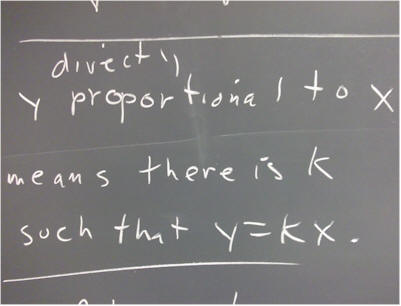 directly
y proportional to x
means there is k
such that y=kx.